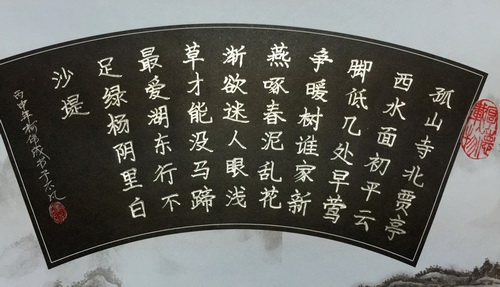 孤山寺北贾亭
西水面初平云
脚低几处早莺
争暖树谁家新
燕啄春泥乱花
渐欲迷人眼浅
草才能没马蹄
最爱湖东行不
足绿杨阴里白
沙堤
丙申年